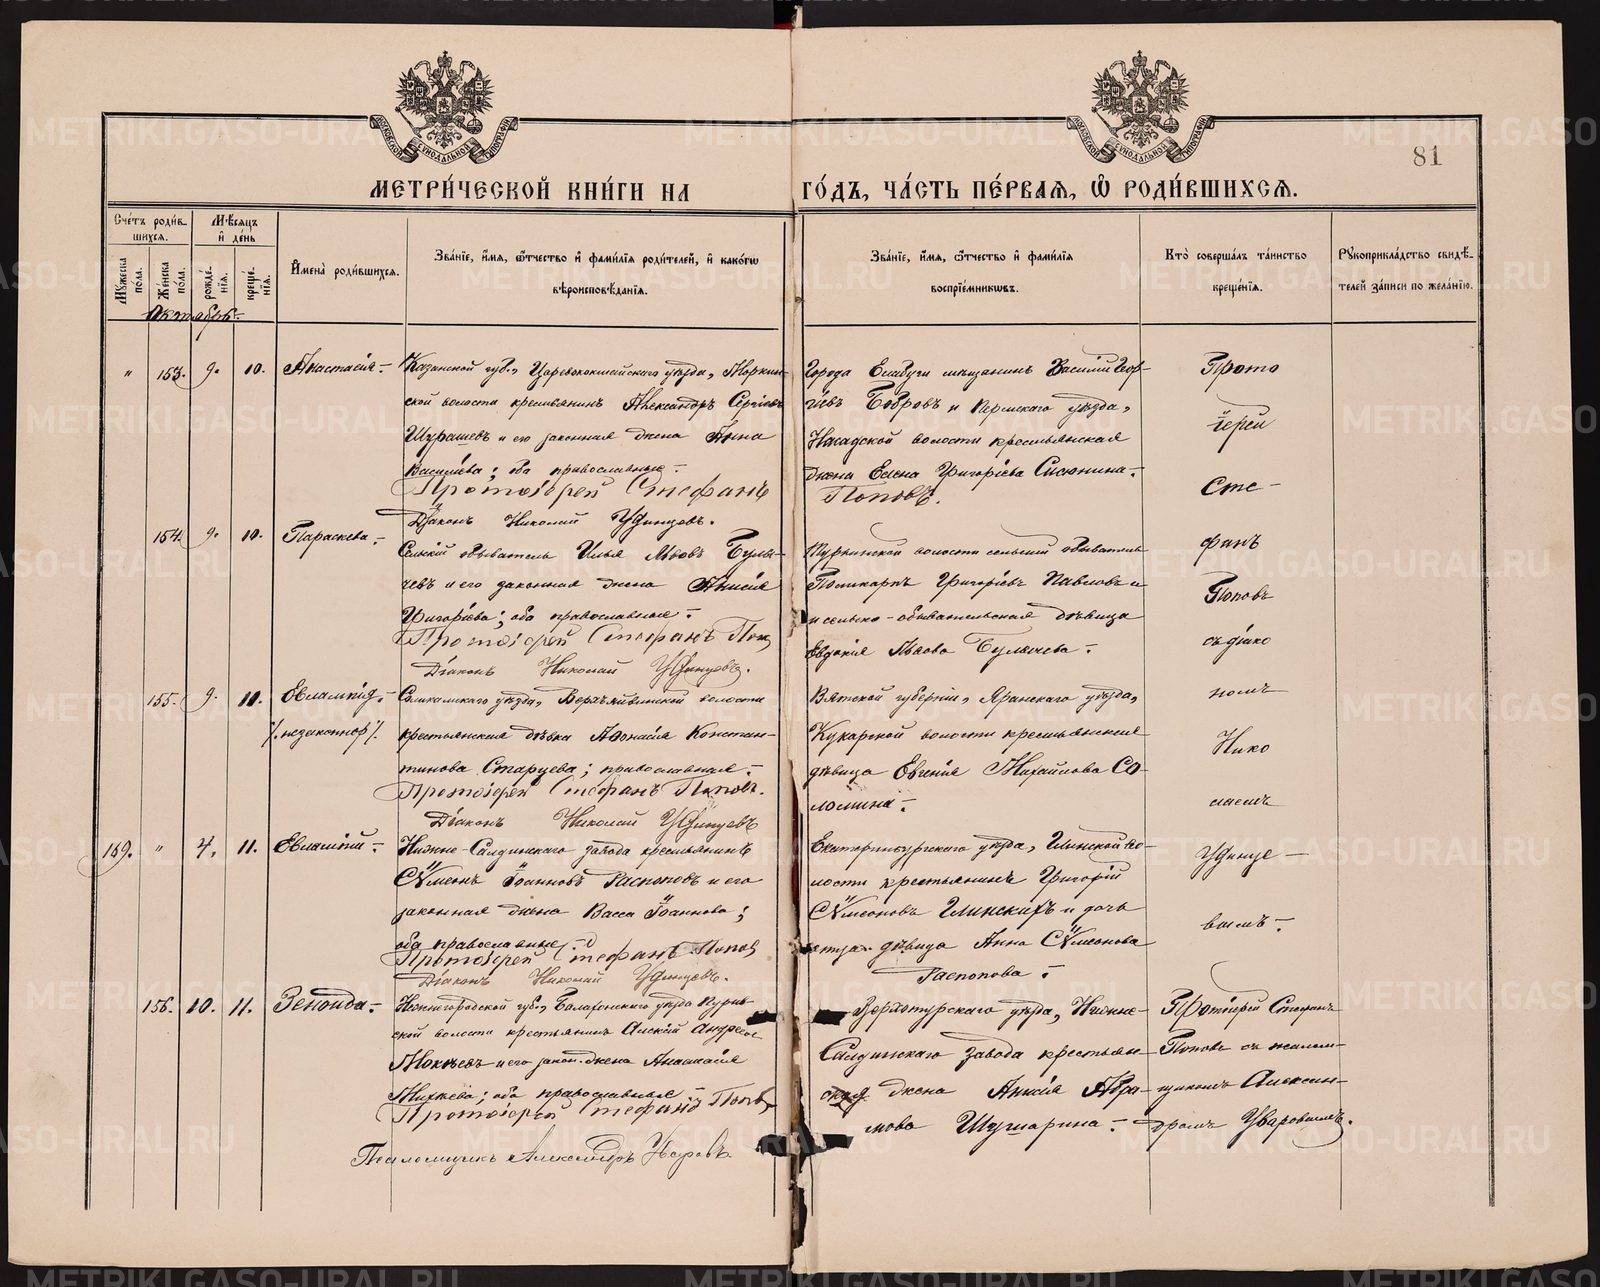 81
МЕТРИ́ЧЕСКОЙ КНИ́ГИ НА ГО́ДЪ, ЧА́СТЬ ПЕ́РВАЯ, Ѡ РОДИ́ВШИХСЯ.
Сче́тъ роди́вшихся.
Мꙋ́жеска по́ла.
Же́нска по́ла.
Мѣ́сяцъ и́ де́нь
рожде́нїя.
креще́нїя.
И́мена̀ роди́вшихся.
Зва́нїе, и́мя, ѻ́тчество и́ фами́лїя роди́телей, и́ како́гѡ
вѣроисповѣ́данїя.
Зва́нїе, и́мя, ѻ́тчество и́ фами́лїя
воспрїе́мникѡвъ.
Кто̀ соверша́лъ та́инство
креще́нїя.
Рꙋкоприкла́дство свидѣ́-
телей за́писи по жела́нїю.
Октябрь.
" 153. 9. 10. Анастасія.
Казанской губ., Царевококшайскаго уѣзда, Моркин-
ской волости крестьянинъ Александръ Сергіевъ
Шурашевъ и его законная жена Анна
Василіева; оба православные.
Протоіерей Стефанъ Поповъ.
Діаконъ Николай Удинцовъ.
Города Елабуги мѣщанинъ Василій Геор-
гіевъ Бобровъ и Пермскаго уѣзда,
Насадской волости крестьянская
жена Елена Григоріева Сисюнина.
154. 9. 10. Параскева.
Сельскій обыватель Илья Львовъ Булы-
чевъ и его законная жена Анисія
Григоріева; оба православные.
Протоіерей Стефанъ Поп
Діаконъ Николай Удинцевъ.
волости сельскій обыватель
Поликарпъ Григоріевъ Павловъ и
сельско-обывательская дѣвица
Евдокія Львова Булычева.
155. 9. 10. Евлампія.
/незаконнор/.
Соликамскаго уѣзда, волости
крестьянская дѣвка Афанасія Констан-
тинова Старцева; православная.
Протоіерей Стефанъ Поповъ.
Діаконъ Николай Удинцевъ
Вятской губерніи, Яранскаго уѣзда,
Кукарской волости крестьянская
дѣвица Евгенія Михайлова Со-
ломина.
159. " 4. 11. Евлампій.
Нижне-Салдинскаго завода крестьянинъ
Сѵмеонъ Іоанновъ Распоповъ и его
законная жена Васса Іоаннова;
оба православные.
Протоіерей Стефанъ Попов
Діаконъ Николай Удинцевъ.
Екатеринбургскаго уѣзда, Глинской во-
лости крестьянинъ Григорій
Сѵмеоновъ Глинскихъ и дочь
отца дѣвица Анна Сѵмеонова
Распопова.
156. 10. 11. Зенонда.
Нижегородской губ., Балахонскаго уѣзда
ской волости крестьянинъ Алексій Андреев
Мокѣевъ и его закон. жена Анастасія
оба православные
Протоіерей Стефанъ Попов
Псаломщикъ Александръ Уваровъ.
Верхотурскаго уѣзда, Нижне-
Салдинскаго завода крестьян-
ская жена Анисія Абра-
мова Шушарина.
Прото
іерей
Сте-
фанъ
Поповъ
съ діако
номъ
Нико
лаемъ
Удинце-
вымъ.
Протіерей Стефанъ
Поповъ съ псалом-
щикомъ Алексан-
дромъ Уваровымъ.